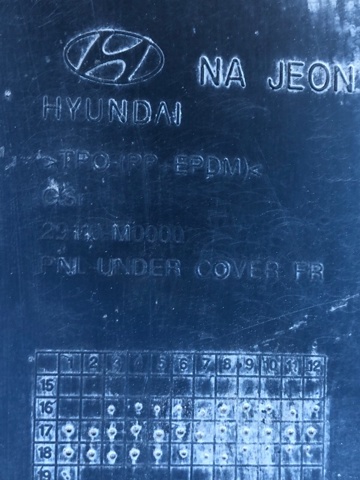 NA JEON
HYUNDAI
>TPO-(PP+EPDM)<
M0000
PNL-UNDER COVER FR
1 2 3 4 5 6 7 8 9 10 11 12
15
16
17
18
19